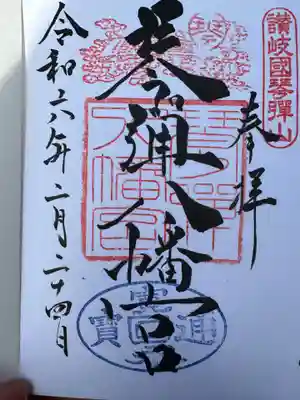 讚岐國琴彈山
奉拝
琴弾八幡宮
琴彈
八幡宮
寛永通寳
令和六年二月二十四日